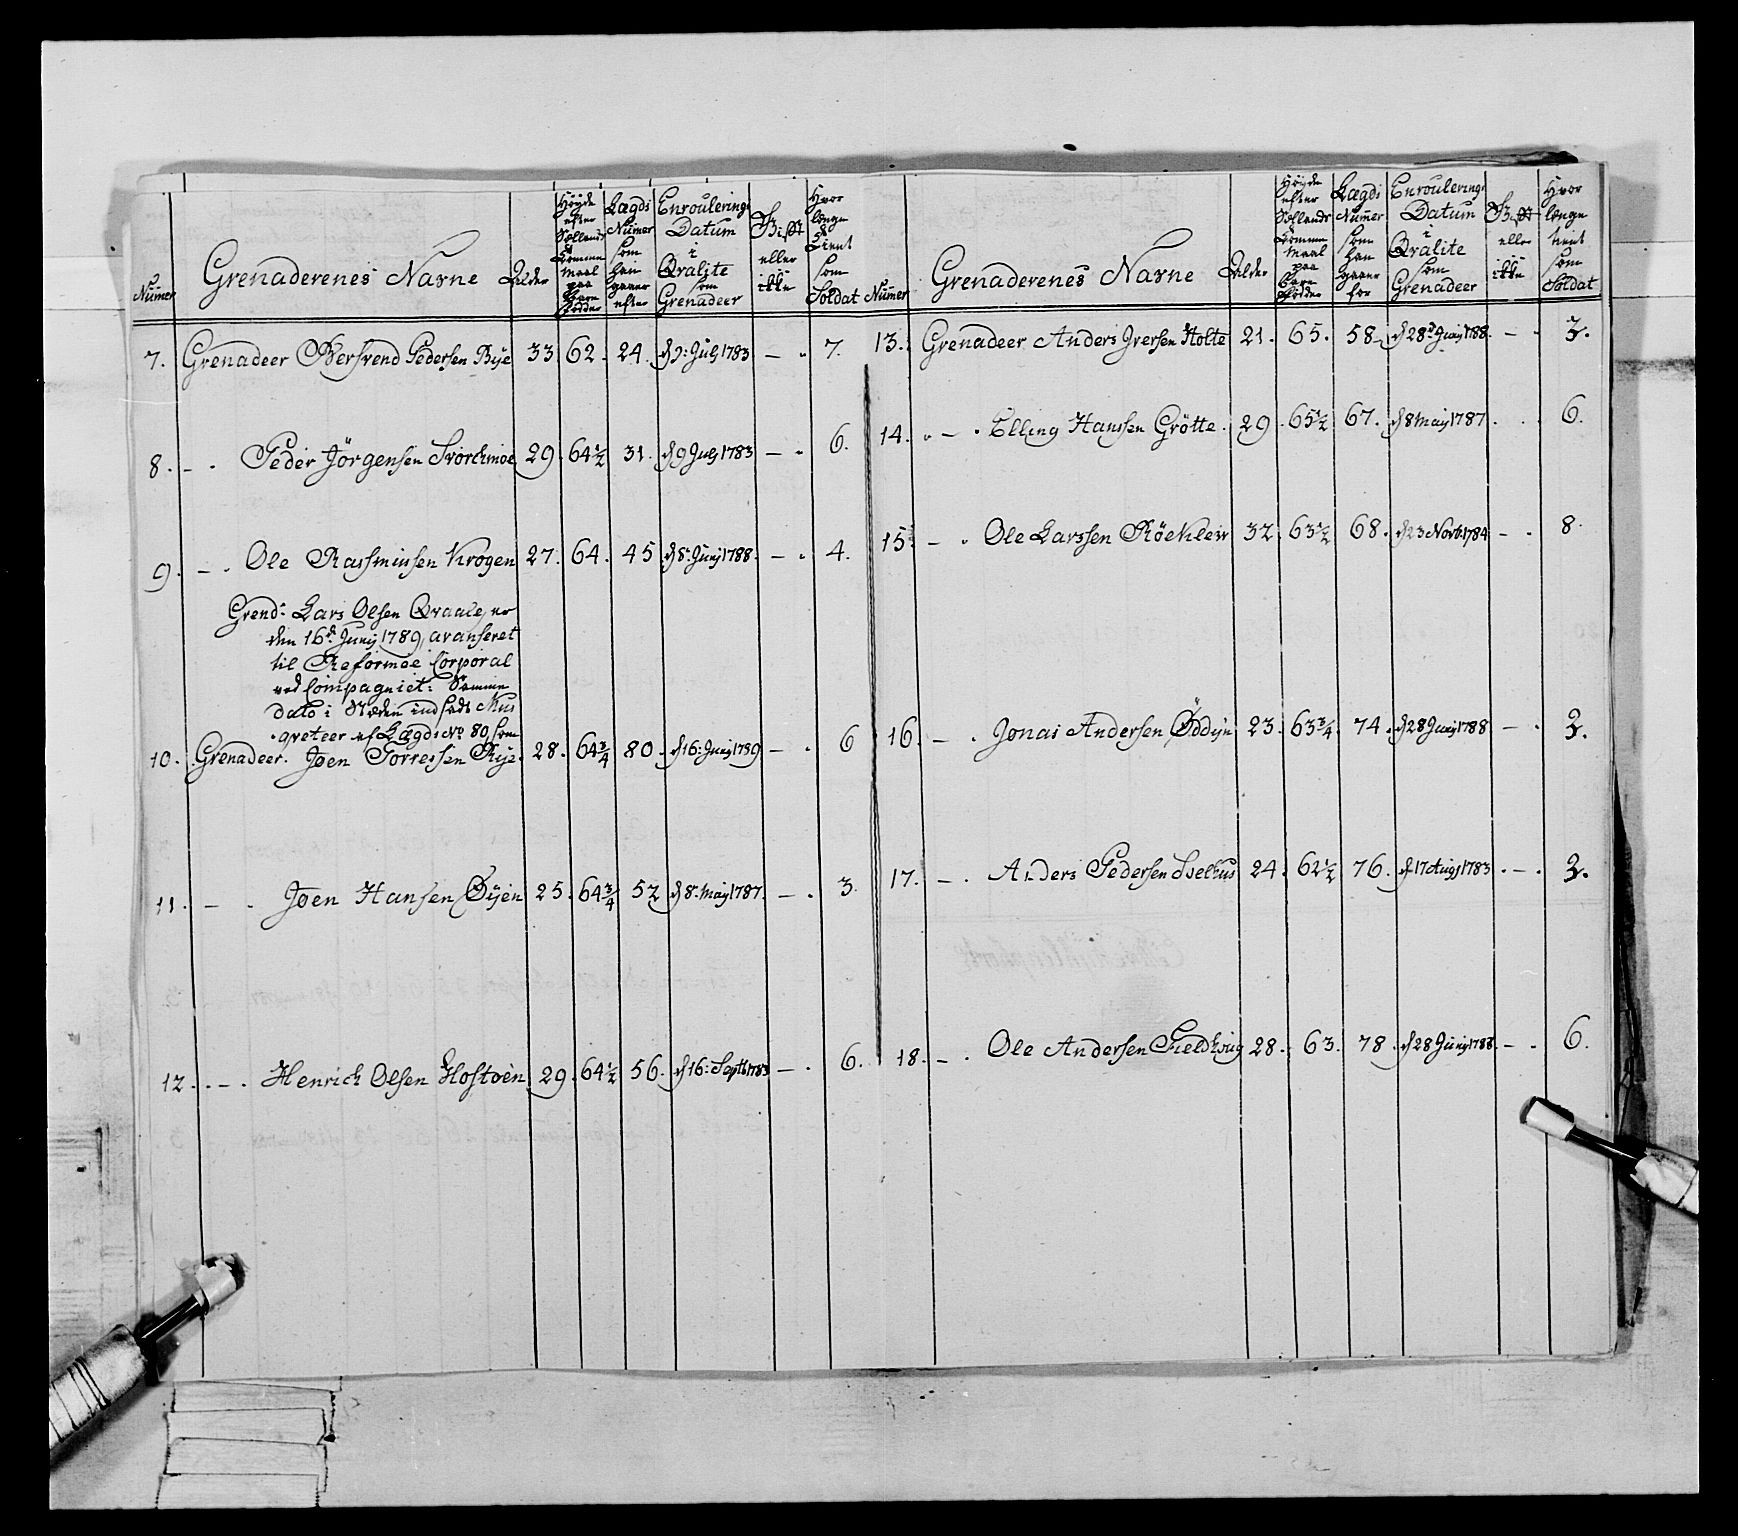 Numer
Grenaderenes Navne
Alder
Høyde
efter
Sællands
Comme
Maal
paa
Bare
Fødder
Lægds
Numer
som
han
gaaer
efter
Enroulerings
Datum
i
Qvalite
som
Grenadeer
Gift
eller
ikke
Hvor
længe
tient
som
Soldat
7. Grenadeer Bersvend Pedersen Bye 33 62. 24. d 9: July 1783 — . 7.
8. — . Peder Jörgensen Svorckmoe 29. 64½ 31. d 9 July 1783 — . 6.
9. — . Ole Rassmusen Krogen 27. 64. 45 d 8: Junij 1788. — . 4.
Grend: Lars Olsen Qvaale, er
den 16de Junij 1789, avanseret
til Reformee Corporal
ved Compagniet: Samme
Dato i Steden indsadt Mus
qveteer af Lægds No 80, som
10. Grenadeer. Joen Torressen Rye. 28. 64¾ 80. d 16: Junij 1789 — . 6
11. — . Joen Hansen Öyen 25. 64¾ 52 d 8: May 1787. — . 3.
12. . — . Henrich Olsen Hostoen 29. 64½ 56. d 16: Septb 1783 — . 6.
Numer
Grenaderenes Navne
Alder
Høyde
efter
Sællands
Comme
Maal
paa
Bare
Fødder
Lægds
Numer
som
han
gaaer
for
Enroulerings
Datum
i
Qvalite
som
Grenadeer
Gift
eller
ikke
Hvor
længe
tient
som
Soldat
13. Grenadeer Anders Iversen Holte 21. 65. 58. d 28de Junij 1788. — . 3.
14. . — . Elling Hanssen Grötte. 29. 65½ 67. d 8 May 1787. . . 6.
15. — . Ole Larssen Röeklev 32. 63½ 68. d 23 Novb: 1784 — . 8
16. — . Jonas Andersen Öddyn 23. 63¾ 74. d 28 Junij 1788 — . 3.
17. — . Anders Pedersen 24. 62½ 76. d 17 Augs 1783 . — . 3.
18. — . Ole Andersen 28. 63. 78. d 28 Junij 1788. — . 6.